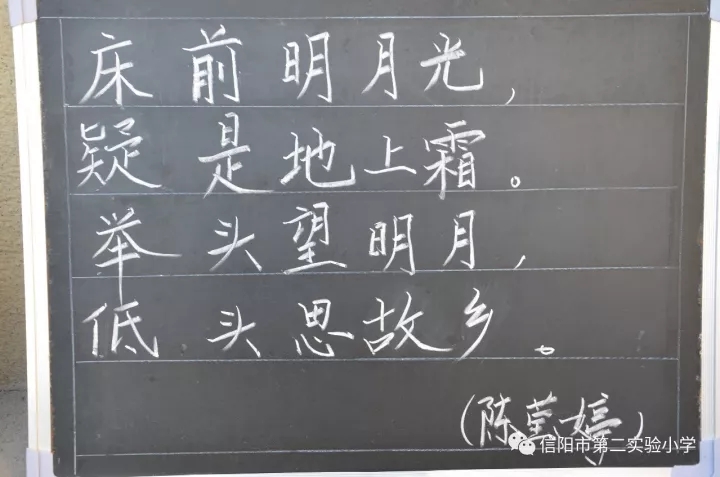 床前明月光，
疑是地上霜。
举头望明月，
低头思故乡。
（陈 婷）
信阳市第二实验小学